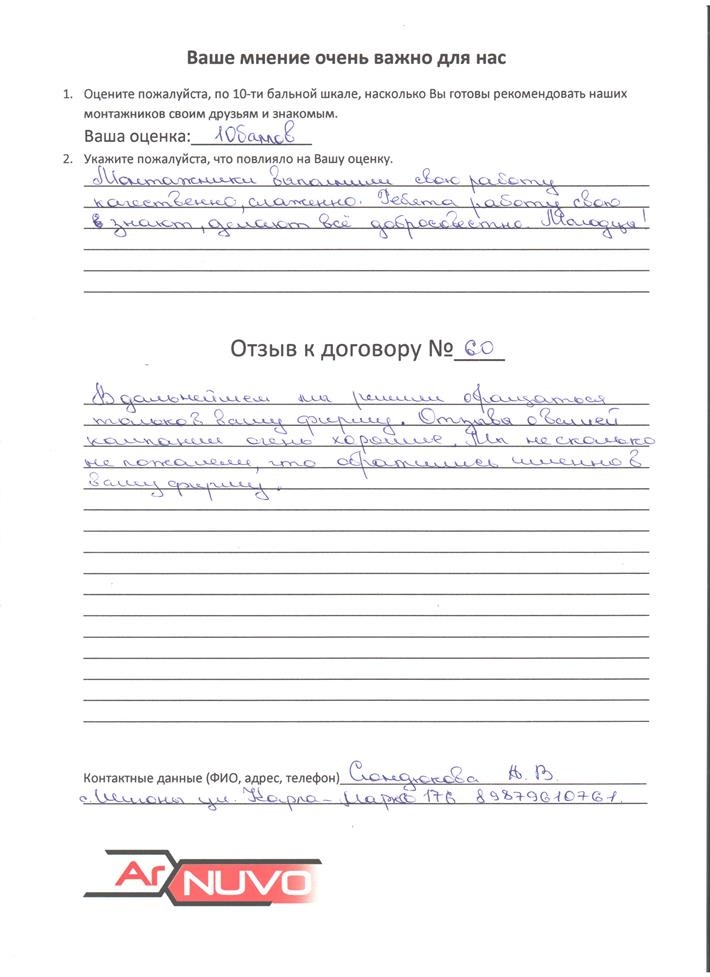 Ваше мнение очень важно для нас
1. Оцените пожалуйста, по 10-ти бальной шкале, насколько Вы готовы рекомендовать наших
монтажников своим друзьям и знакомым.
Ваша оценка: 10 баллов
2. Укажите пожалуйста, что повлияло на Вашу оценку.
Монтажники выполнили свою работу
качественно, слаженно. Ребята работу свою
знают, делают всё добросовестно. Молодцы!
Отзыв к договору № 60
В дальнейшем мы решили обращаться
только в вашу фирму. Отзывы о вашей
кампании очень хорошие. Мы несколько
не пожалели, что обратились именно в
вашу фирму.
Контактные данные (ФИО, адрес, телефон) Сюндюкова Н. В.
с. ул. Карла-Маркс 176 89879610761.
Ar
NUVO